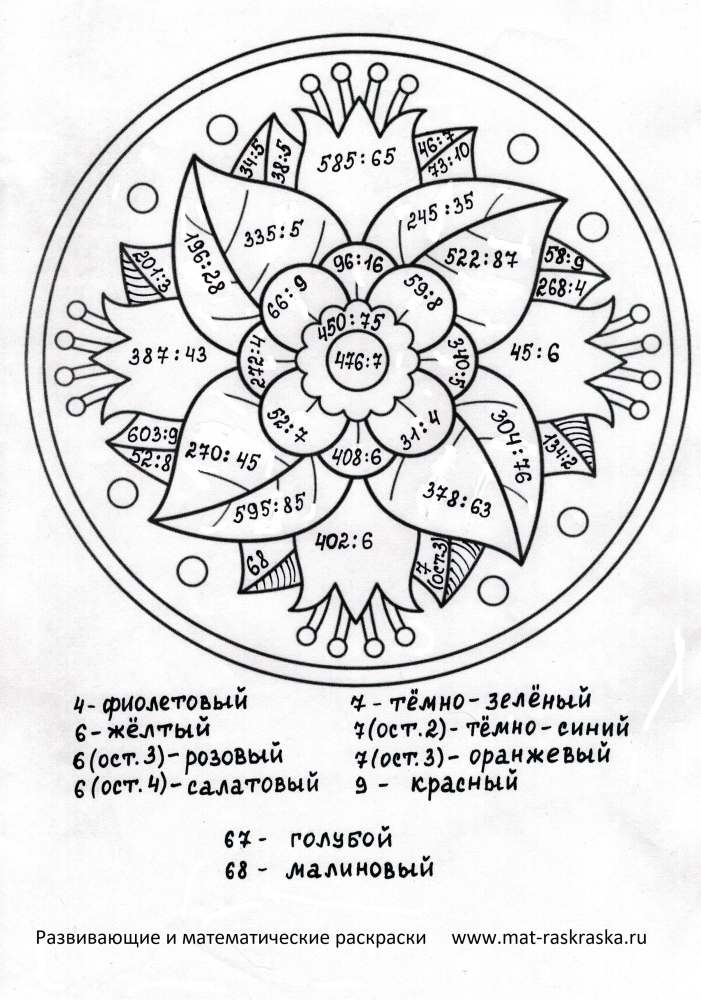 585:65
34:5
38:5
46:7
73:10
335:5
245:35
196:28
522:87
201:3
58:9
268:4
96:16
66:9
59:8
450:75
476:7
387:43
272:4
340:5
45:6
52:7
31:4
408:6
603:9
52:8
270:45
304:76
134:2
595:85
378:63
402:6
68
7 (ост.3)
4-фиолетовый
7 - тёмно-зелёный
6-жёлтый
7(ост.2)-тёмно-синий
6(ост.3)-розовый
7(ост.3)-оранжевый
6(ост.4)-салатовый
9 - красный
67- голубой
68- малиновый
Развивающие и математические раскраски www.mat-raskraska.ru